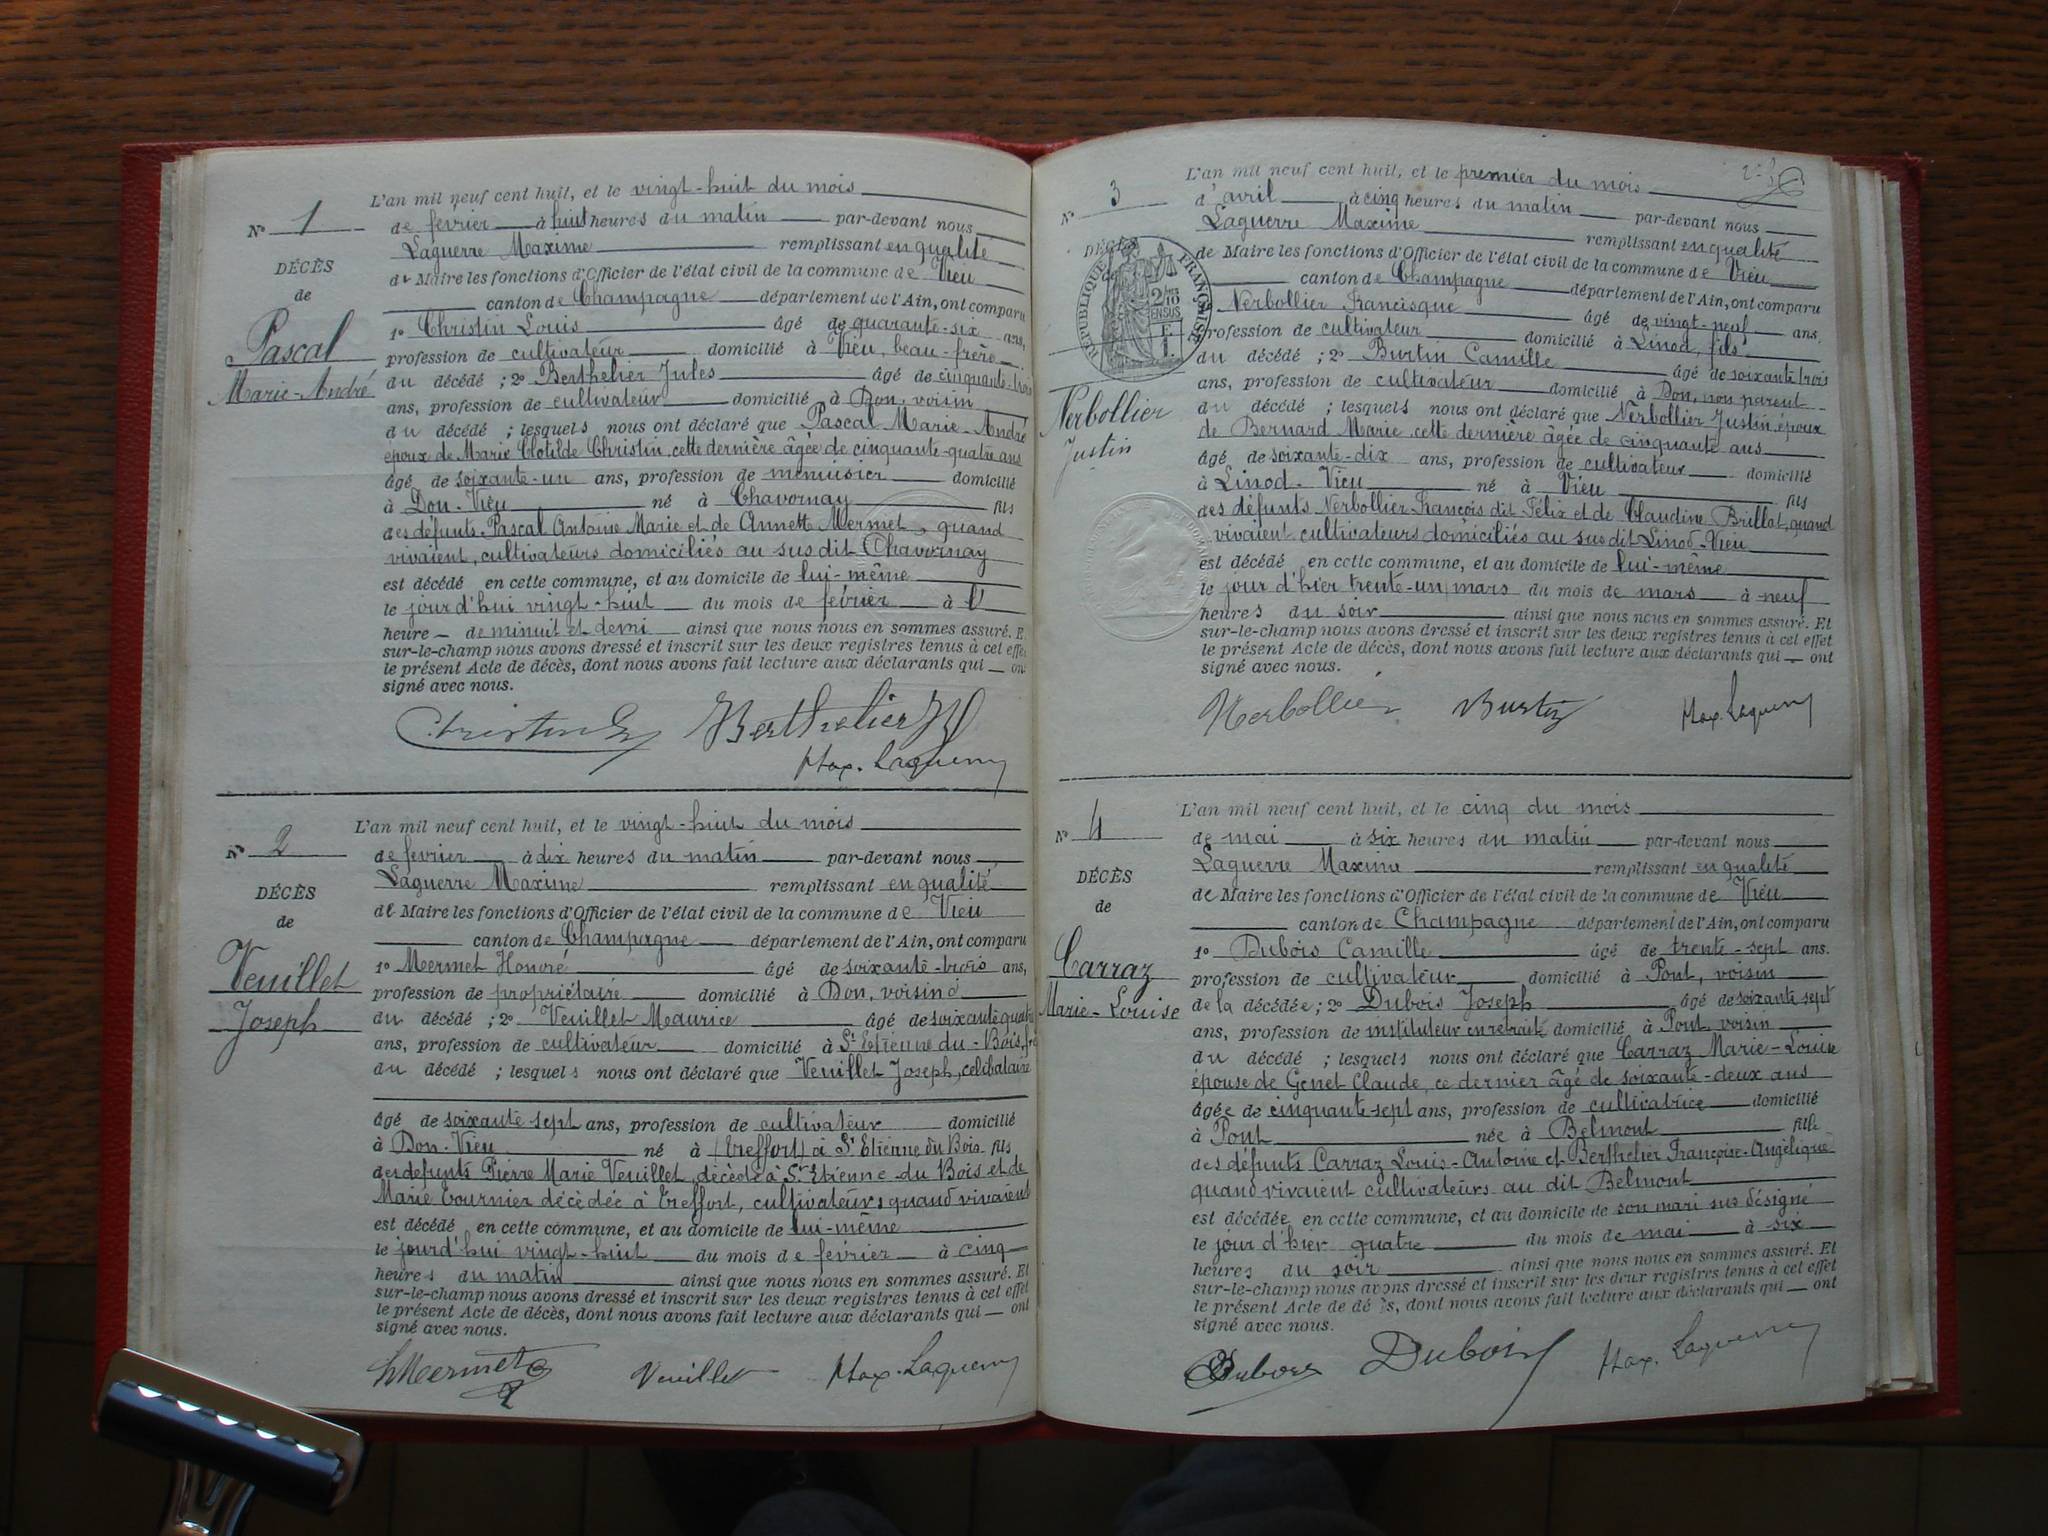 L'an mil neuf cent huit, et le vingt-huit du mois
N° 1
de février à huit heures du matin par-devant nous
Laguerre Maxime remplissant en qualité
DÉCÈS
de Maire les fonctions d'Officier de l'état civil de la commune de Vieu
de
canton de Champagne département de l'Ain, ont comparu
Pascal
Marie-André
1° Christin Louis âgé de quarante-six ans,
profession de cultivateur domicilié à Vieu, beau-frère
du décédé ; 2° Berthelier Jules âgé de cinquante-trois
ans, profession de cultivateur domicilié à Don, voisin
du décédé ; lesquels nous ont déclaré que Pascal Marie-André
époux de Marie Clotilde Christin, cette dernière âgée de cinquante-quatre ans
âgé de soixante-un ans, profession de menuisier domicilié
à Don-Vieu né à Chavornay fils
des défunts Pascal Antoine Marie et de Annette Mermet, quand
vivaient, cultivateurs domiciliés au sus dit Chavornay
est décédé en cette commune, et au domicile de lui-même
le jour d'hui vingt-huit du mois de février à l'
heure de minuit et demi ainsi que nous nous en sommes assuré. E
sur-le-champ nous avons dressé et inscrit sur les deux registres tenus à cet effet
le présent Acte de décès, dont nous avons fait lecture aux déclarants qui ont
signé avec nous.
Christin Berthelier
Max. Laguerre
L'an mil neuf cent huit, et le vingt-huit du mois
N° 2
de février à dix heures du matin par-devant nous
Laguerre Maxime remplissant en qualité
DÉCÈS
de Maire les fonctions d'Officier de l'état civil de la commune de Vieu
de
canton de Champagne département de l'Ain, ont comparu
Veuillet
Joseph
1° Mermet Honoré âgé de soixante-trois ans,
profession de propriétaire domicilié à Don, voisin
du décédé ; 2° Veuillet Maurice âgé de soixante quatre
ans, profession de cultivateur domicilié à St Etienne du-Bois,
du décédé ; lesquels nous ont déclaré que Veuillet Joseph, célibataire
âgé de soixante-sept ans, profession de cultivateur domicilié
à Don-Vieu né à (Treffort) à St Etienne du Bois fils
des défunts Pierre Marie Veuillet, décédé à St Etienne-du Bois et de
Marie Tournier décédée à Treffort, cultivateurs quand vivaient
est décédé en cette commune, et au domicile de lui-même
le jour d'hui vingt-huit du mois de février à cinq
heures du matin ainsi que nous nous en sommes assuré. Et
sur-le-champ nous avons dressé et inscrit sur les deux registres tenus à cet effet
le présent Acte de décès, dont nous avons fait lecture aux déclarants qui ont
signé avec nous.
Mermet Veuillet Max. Laguerre
L'an mil neuf cent huit, et le premier du mois
N° 3
d'avril à cinq heures du matin par-devant nous
Laguerre Maxime remplissant en qualité
DÉCÈS
de Maire les fonctions d'Officier de l'état civil de la commune de Vieu
canton de Champagne département de l'Ain, ont comparu
RÉPUBLIQUE FRANÇAISE
2/10 EN SUS
Nerbollier
Justin
Nerbollier Francisque âgé de vingt-neuf ans.
profession de cultivateur domicilié à Linod, fils
du décédé ; 2° Burtin Camille âgé de soixante trois
ans, profession de cultivateur domicilié à Don, non parent
du décédé ; lesquels nous ont déclaré que Nerbollier Justin, époux
de Bernard Marie, cette dernière âgée de cinquante ans
âgé de soixante-dix ans, profession de cultivateur domicilié
à Linod-Vieu né à Vieu fils
des défunts Nerbollier François dit Félix et de Claudine Brillat, quand
vivaient cultivateurs domiciliés au sus dit Linod-Vieu
est décédé en cette commune, et au domicile de lui-même
le jour d'hier trente-un mars du mois de mars à neuf
heures du soir ainsi que nous nous en sommes assuré. Et
sur-le-champ nous avons dressé et inscrit sur les deux registres tenus à cet effet
le présent Acte de décès, dont nous avons fait lecture aux déclarants qui ont
signé avec nous.
Nerbollier Burtin Max. Laguerre
L'an mil neuf cent huit, et le cinq du mois
N° 4
de mai à six heures du matin par-devant nous
Laguerre Maxime remplissant en qualité
DÉCÈS
de Maire les fonctions d'Officier de l'état civil de la commune de Vieu
de
canton de Champagne département de l'Ain, ont comparu
Carraz
Marie-Louise
1° Dubois Camille âgé de trente-sept ans.
profession de cultivateur domicilié à Pont, voisin
de la décédée ; 2° Dubois Joseph âgé de soixante sept
ans, profession de instituteur en retraite domicilié à Pont, voisin
du décédé ; lesquels nous ont déclaré que Carraz Marie-Louise
épouse de Genet Claude, ce dernier âgé de soixante-deux ans
âgée de cinquante-sept ans, profession de cultivatrice domicilié
à Pont née à Belmont fille
des défunts Carraz Louis-Antoine et Berthelier Françoise-Angélique
quand vivaient cultivateurs au dit Belmont
est décédée en cette commune, et au domicile de son mari sus désigné
le jour d'hier quatre du mois de mai à six
heures du soir ainsi que nous nous en sommes assuré. Et
sur-le-champ nous avons dressé et inscrit sur les deux registres tenus à cet effet
le présent Acte de décès, dont nous avons fait lecture aux déclarants qui ont
signé avec nous.
Dubois Dubois Max. Laguerre